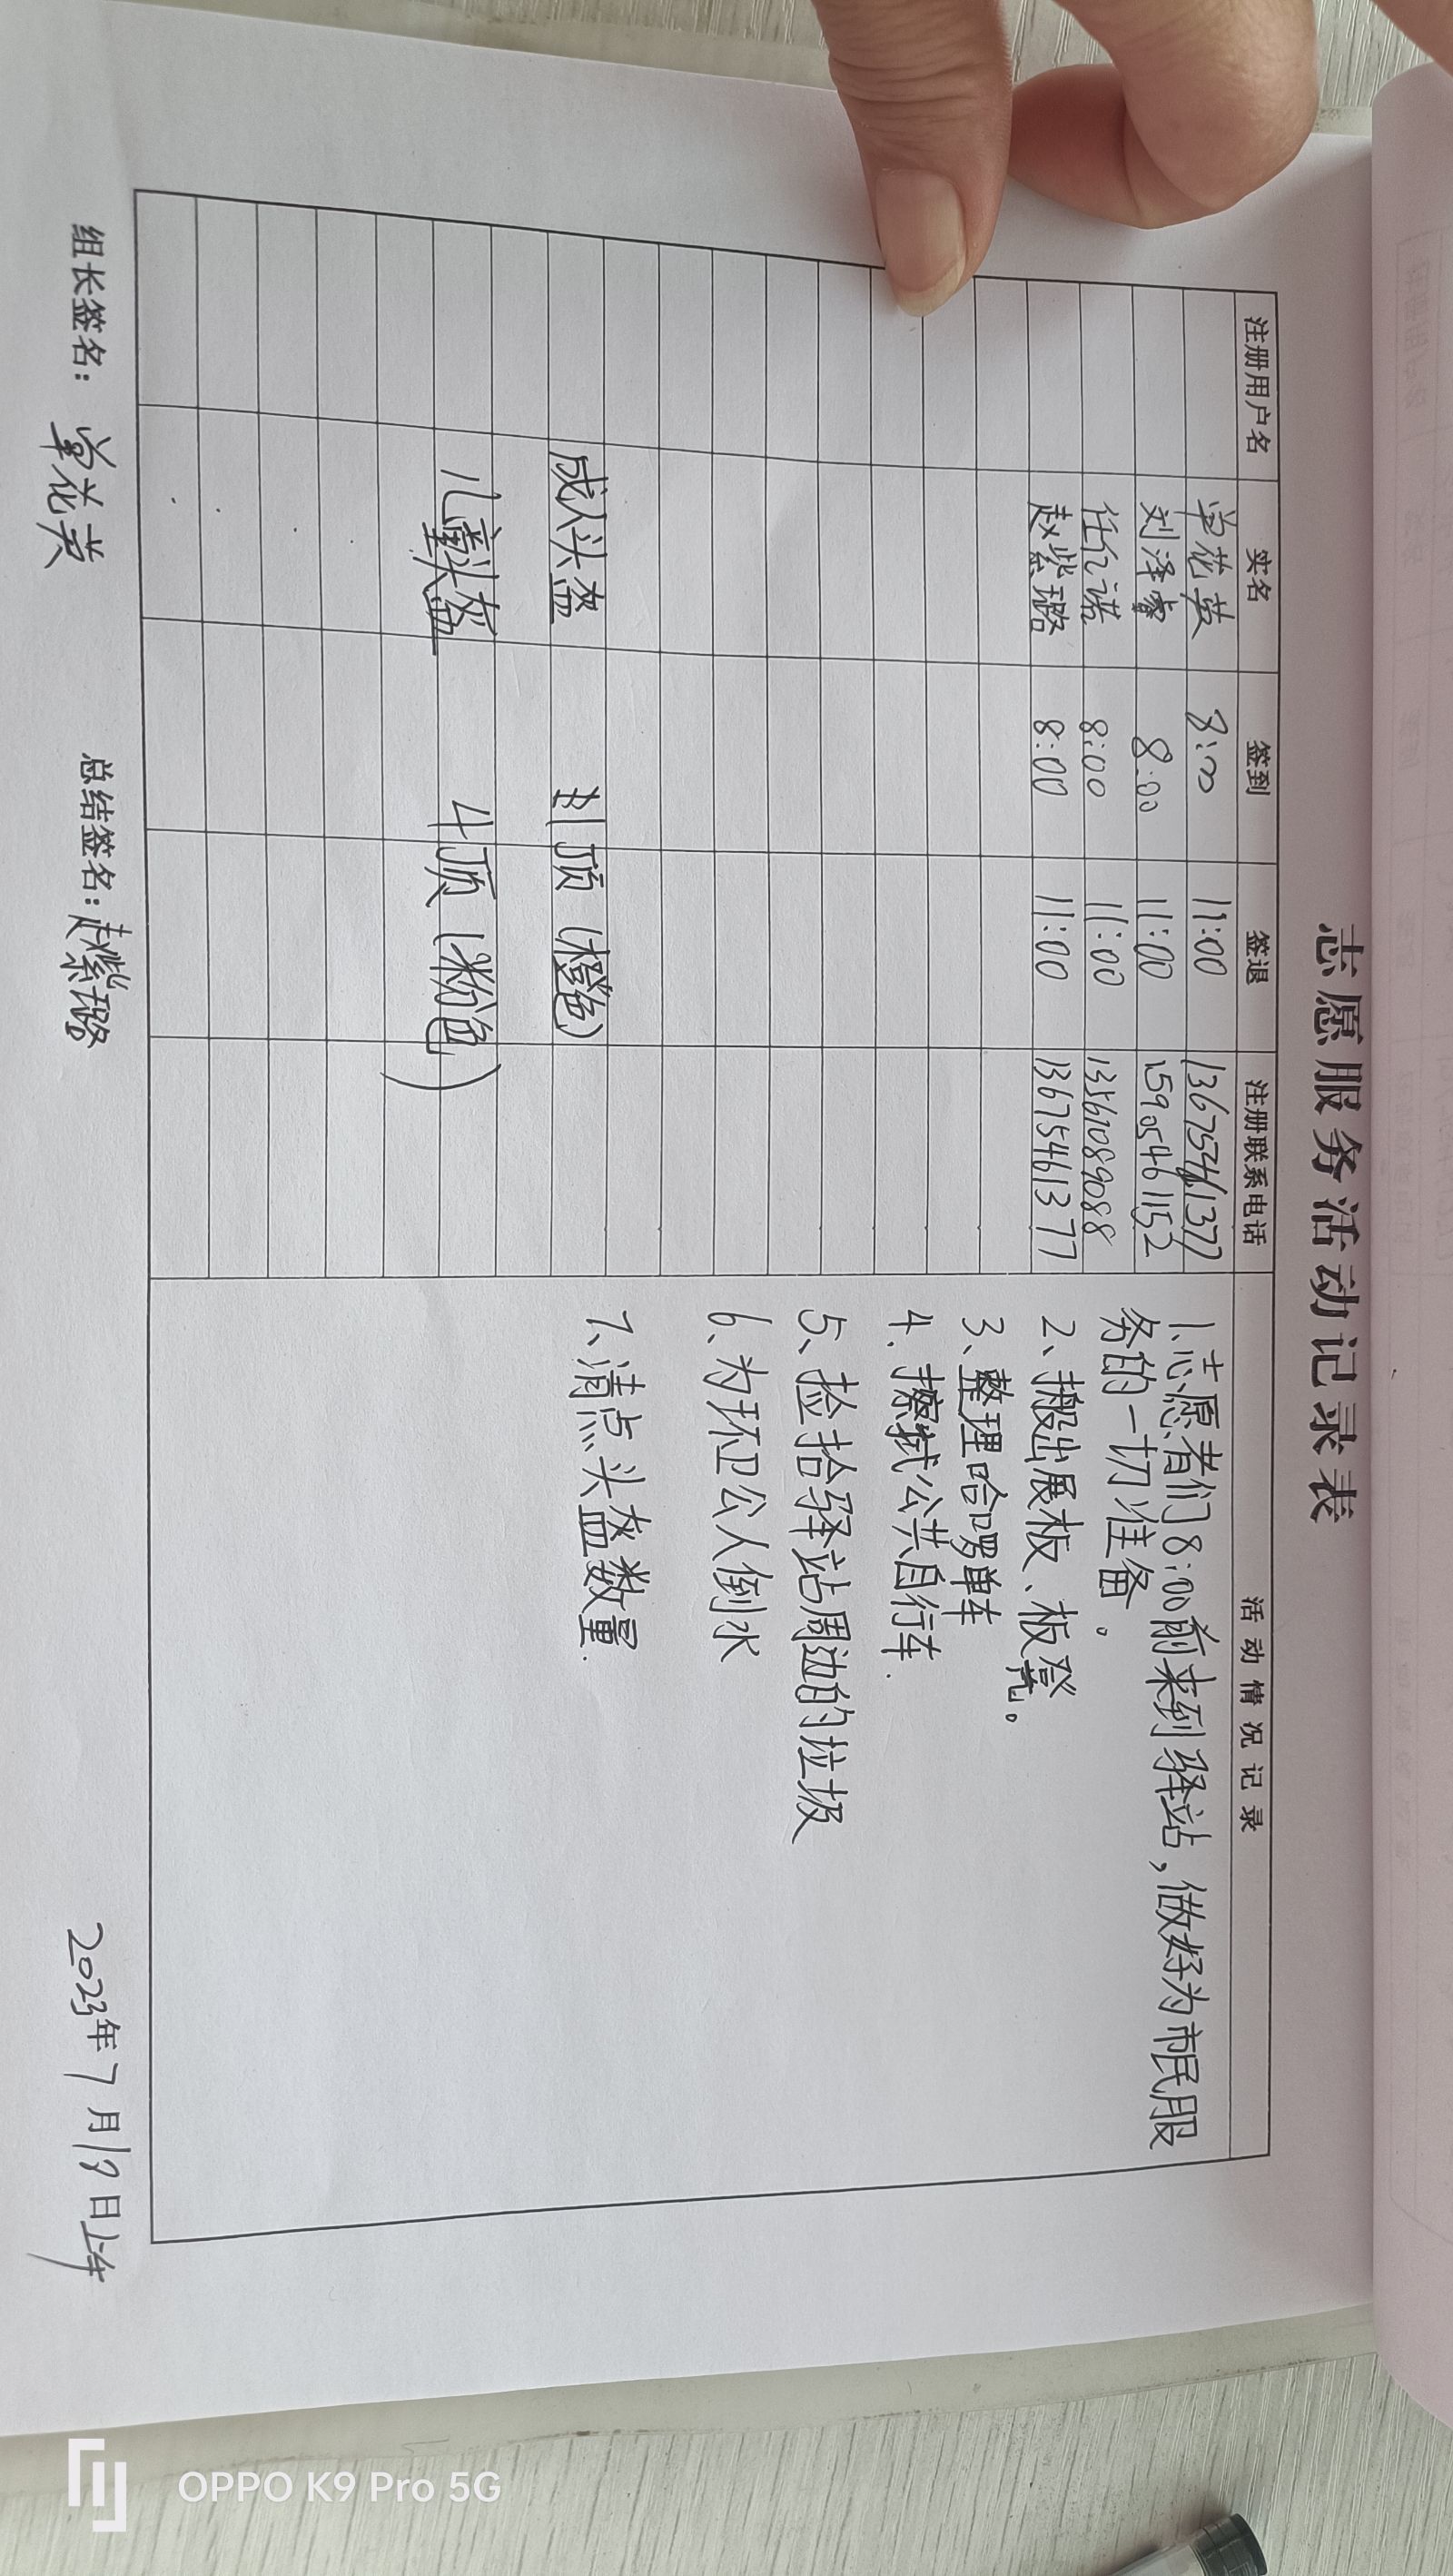 志愿服务活动记录表
注册用户名 实名 签到 签退 注册联系电话 活动情况记录
单花英 8:00 11:00 13675461377
刘泽睿 8:00 11:00 15905461152
任亿诺 8:00 11:00 13561089088
赵紫璐 8:00 11:00 13675461377
1、志愿者们8:00前来到驿站,做好为市民服
务的一切准备。
2、搬出展板、板凳。
3、整理哈啰单车
4、擦拭公共自行车.
5、捡拾驿站周边的垃圾
6、为环卫公人倒水
7、清点头盔数量.
成人头盔 顶(橙色)
儿童头盔 4顶(粉色)
组长签名: 单花英 总结签名:赵紫璐 2023年7月18日上午
OPPO K9 Pro 5G